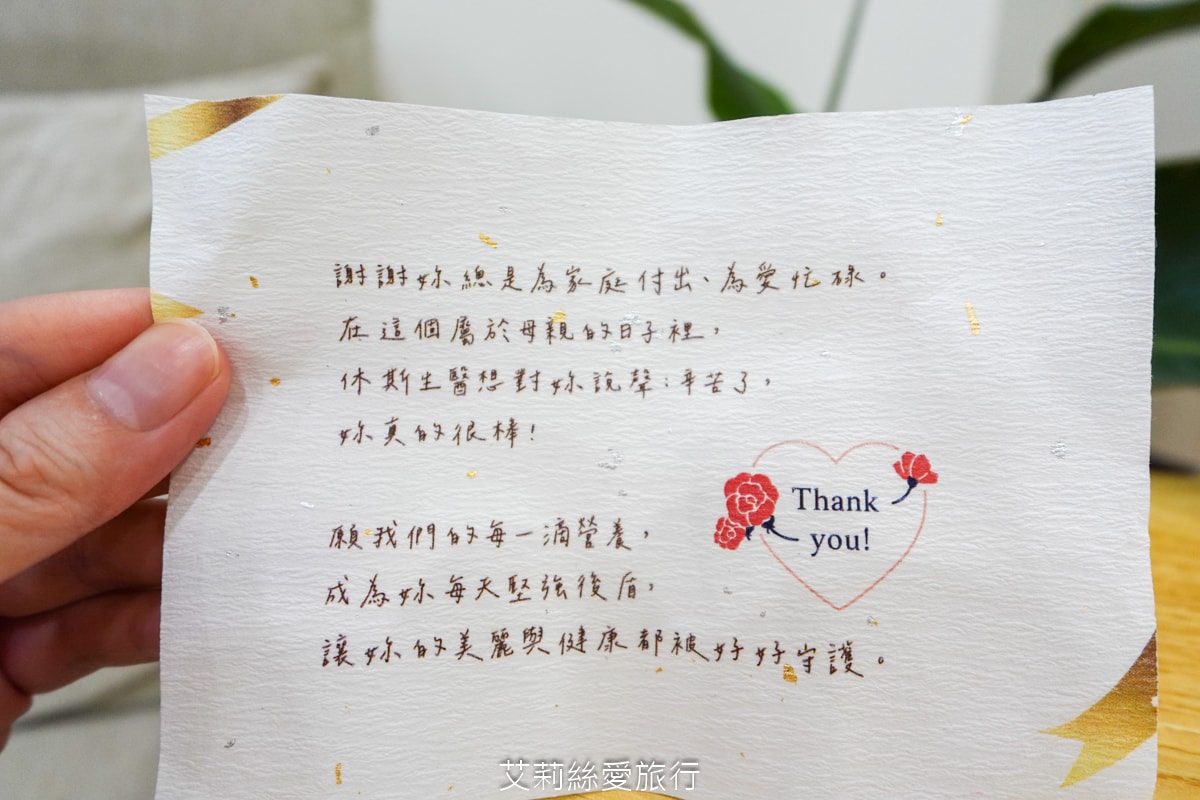 謝謝妳總是為家庭付出、為愛忙碌。
在這個屬於母親的日子裡，
休斯生醫想對妳說聲：辛苦了，
妳真的很棒！
願我們的每一滴營養，
成為妳每天堅強後盾，
讓妳的美麗與健康都被好好守護。
Thank
you!
艾莉絲愛旅行